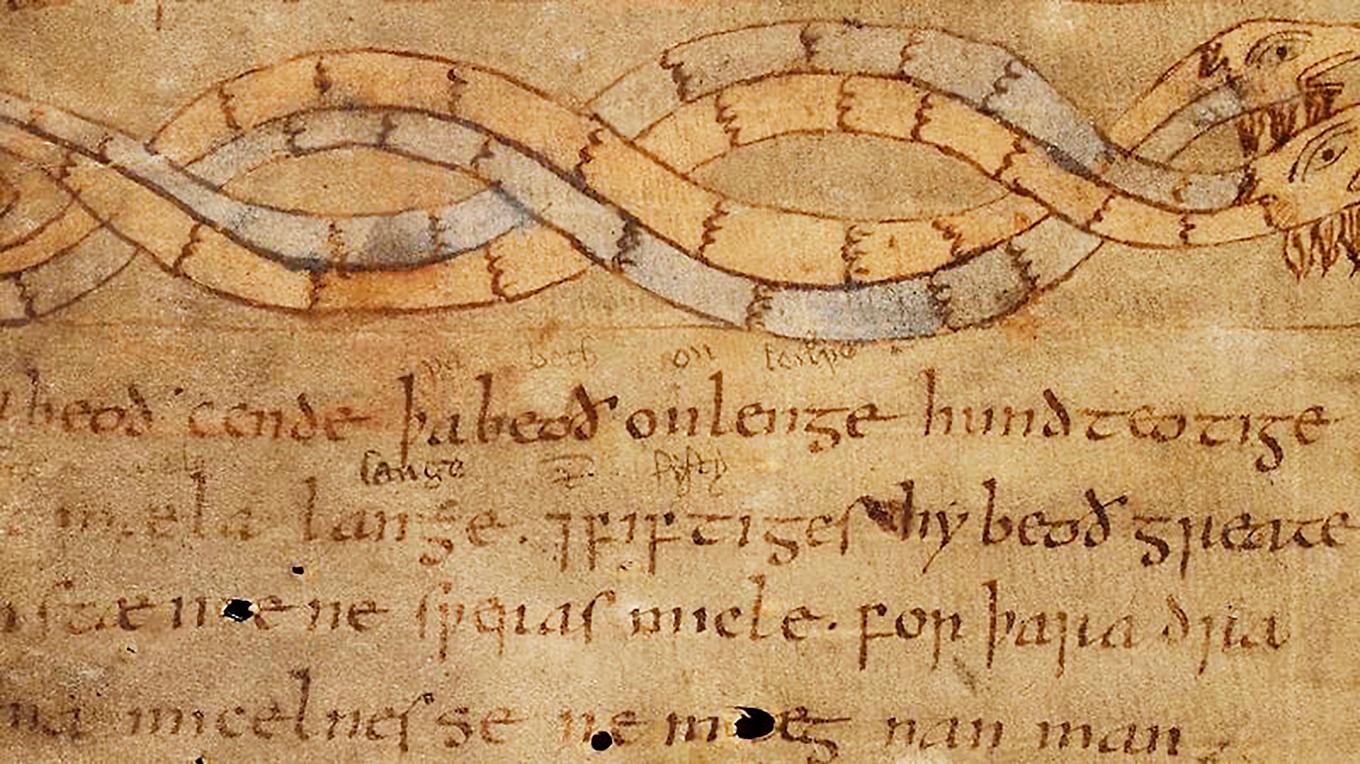 on
beoð cende þa beoð on lenge hundteotige
lange ⁊
mela lange. ⁊ fiftiges hy beoð greate
stænene sƿeras micle. for þara dra
na micelnesse ne mæg nan man